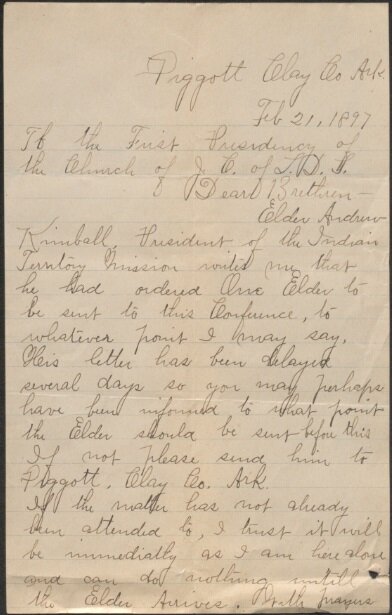 Piggott Clay Co Ark
Feb 21, 1897
To the First Presidency of
the Church of J. C. of L. D. S.
Dear Brethren—
Elder Andrew
Kimball, President of the Indian
Territory Mission writes me that
he had ordered One Elder to
be sent to this Conference, to
whatever point I may say.
His letter has been delayed
several days so you may perhaps
have been informed to what point
the Elder should be sent before this
If not please send him to
Piggott, Clay Co. Ark.
If the matter has not already
been attended to, I trust it will
be immediatly as I am here alone
and can do nothing untill
the Elder Arrives. With prayers